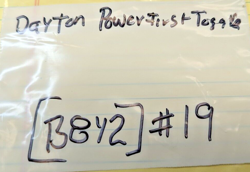 Dayton Power First Toggle
[B8Y2] #19